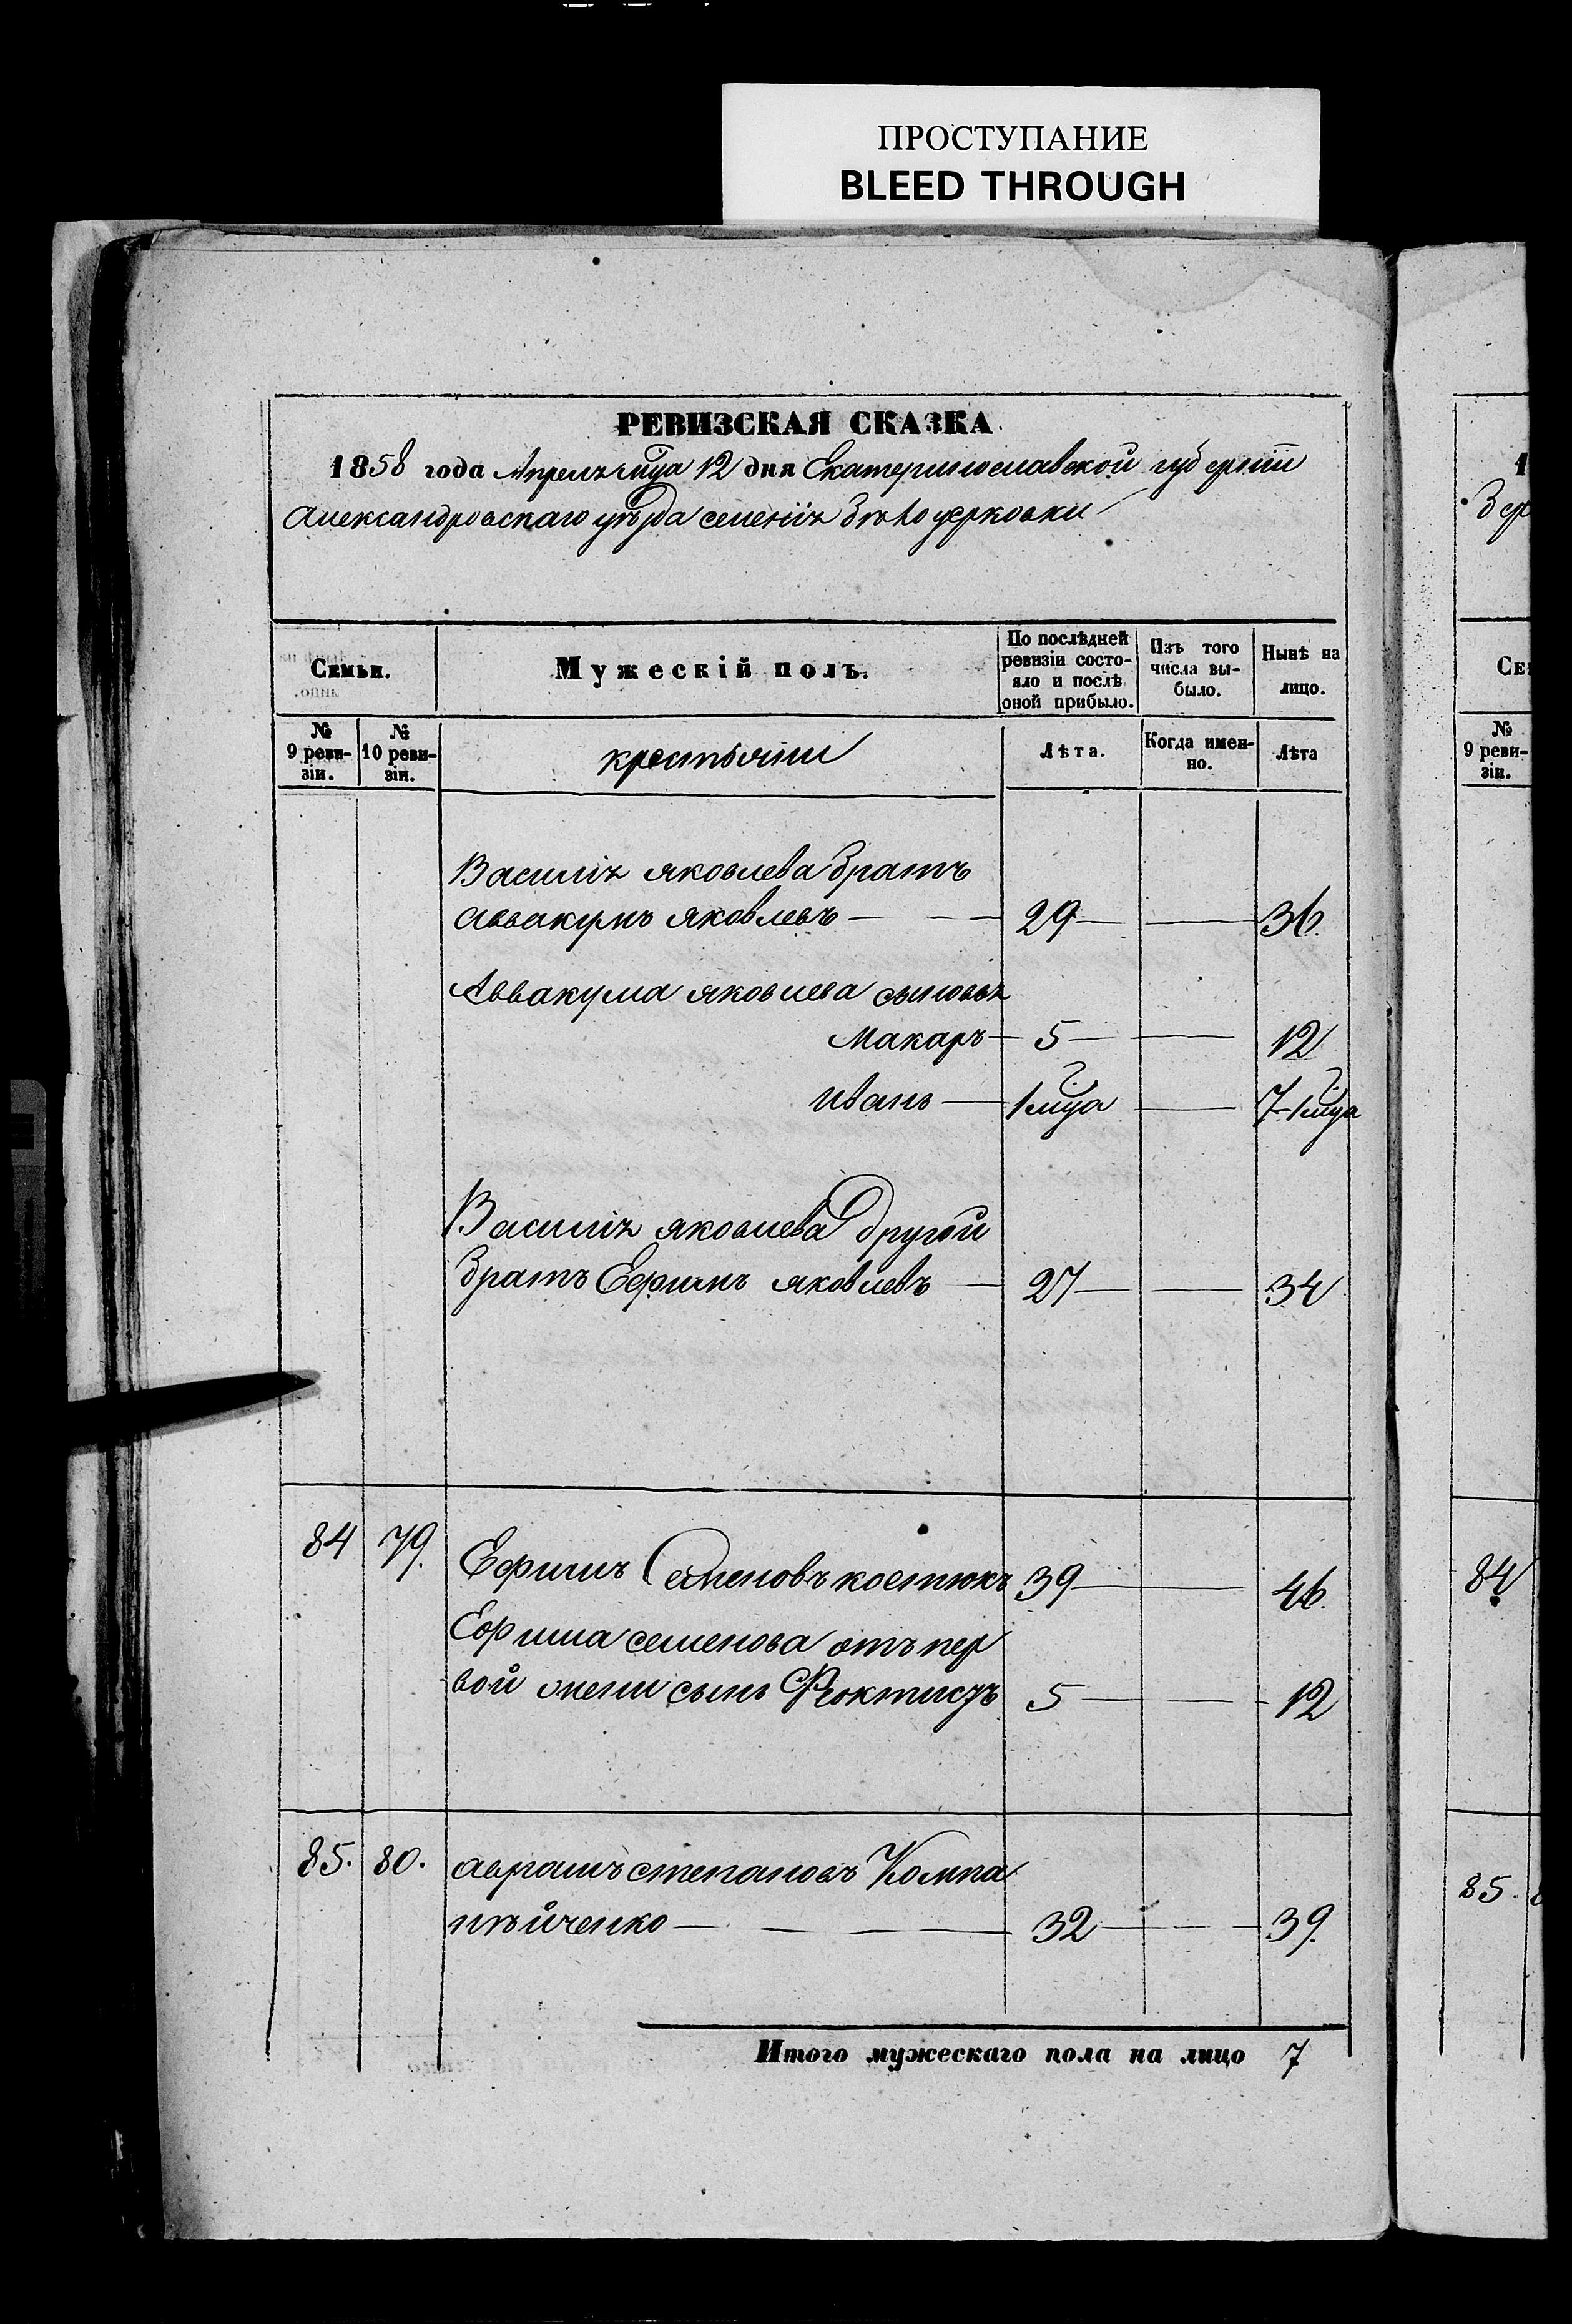 ПРОСТУПАНИЕ
BLEED THROUGH
РЕВИЗСКАЯ СКАЗКА.
1858 года Апреля мца 12 дня Екатеринославской губерніи
Александровскаго уѣзда селенія Бѣлоцерковки
1
Семьи.
Мужескій полъ.
По послѣдней ревизіи состояло и послѣ оной прибыло.
Изъ того числа выбыло.
Нынѣ на лицо.
СЕ
№ 9 ревизіи.
№ 10 ревизіи.
крестьяни
Лѣта.
Когда именно.
Лѣта
№ 9 ревизіи.
Василія Яковлева братъ
Аввакумъ Яковлевъ — — — 29 — — 36.
Аввакума Яковлева сыновья
Макаръ — 5 — — 12
Иванъ — 1 мца — 7. 1 мца
Василія Яковлева другой
братъ Ефимъ Яковлевъ — 27 — — 34
84 79. Ефимъ Семеновъ Костюкъ 39 — 46. 84
Ефима Семенова отъ пер
вой жени сынъ Феоктистъ 5 — — 12
85. 80. Аврамъ Степановъ Компа
нѣйченко — — — 32 — — 39. 85.
Итого мужескаго пола на лицо 7